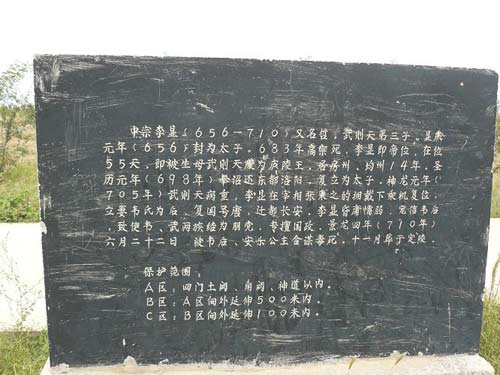 中宗李显（656—710）又名哲，武则天第三子。显庆
元年（656）封为太子。683年高宗死，李显即帝位，在位
55天，即被生母武则天废为庐陵王，居房州、均州14年，圣
历元年（698年）奉诏还东都洛阳，复立为太子，神龙元年（
705年）武则天病重，李显在宰相张柬之的拥戴下乘机复位，
立妻韦氏为后，复国号唐，迁都长安。李显昏庸懦弱，宠信韦后
，致使韦、武两族结为朋党，专擅国政，景龙四年（710年）
六月二十二日 被韦后、安乐公主合谋毒死，十一月葬于定陵。
保护范围：
A区：四门土阙、角阙、神道以内。
B区：A区向外延伸500米内。
C区：B区向外延伸100米内。